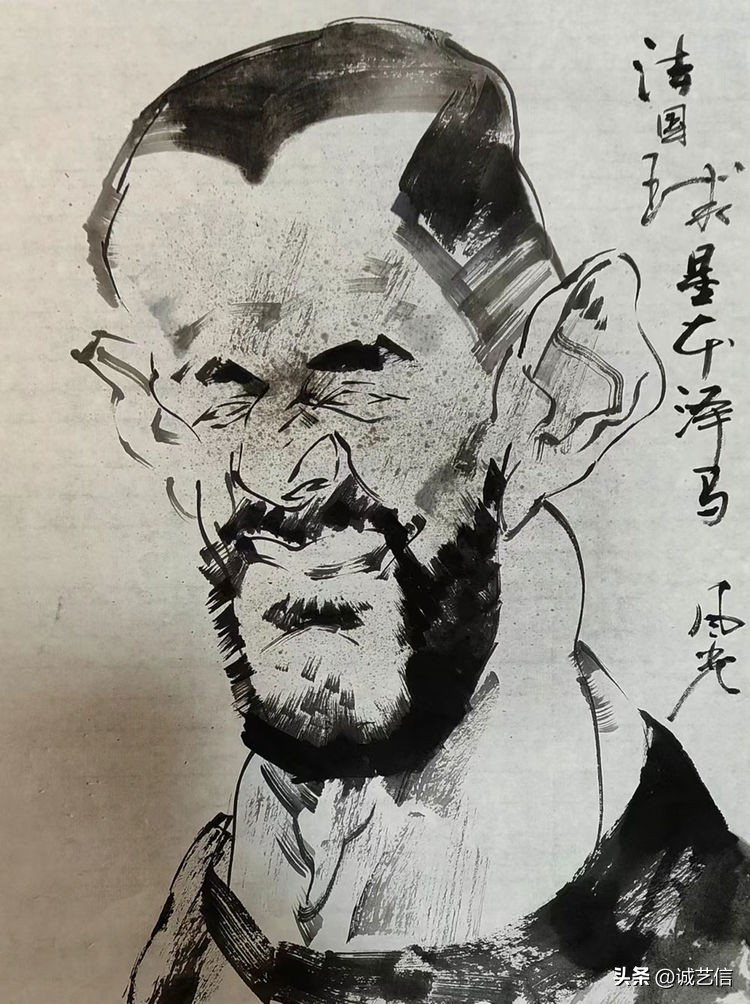 法国球星本泽马
风光
头条 @诚艺信